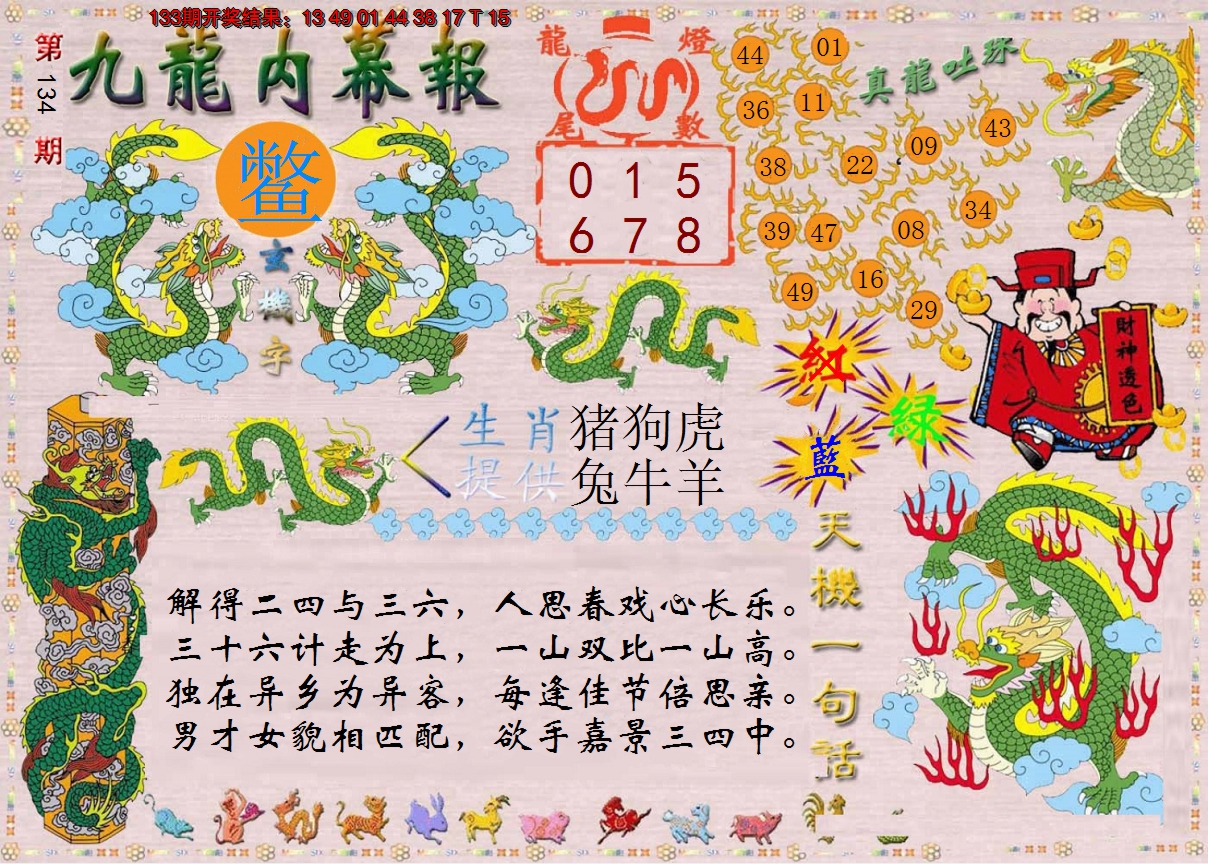 133期开奖结果：13 49 01 44 38 17 T 15
第134期
九龍内幕報
鳖
玄機字
龍燈
尾數
0 1 5
6 7 8
真龍吐珠
44
01
36
11
09
43
38
22
34
39
47
08
49
16
29
財神透色
紅
綠
藍
生肖
提供
猪狗虎
兔牛羊
天機一句話
解得二四与三六，人思春戏心长乐。
三十六计走为上，一山双比一山高。
独在异乡为异客，每逢佳节倍思亲。
男才女貌相匹配，欲手嘉景三四中。